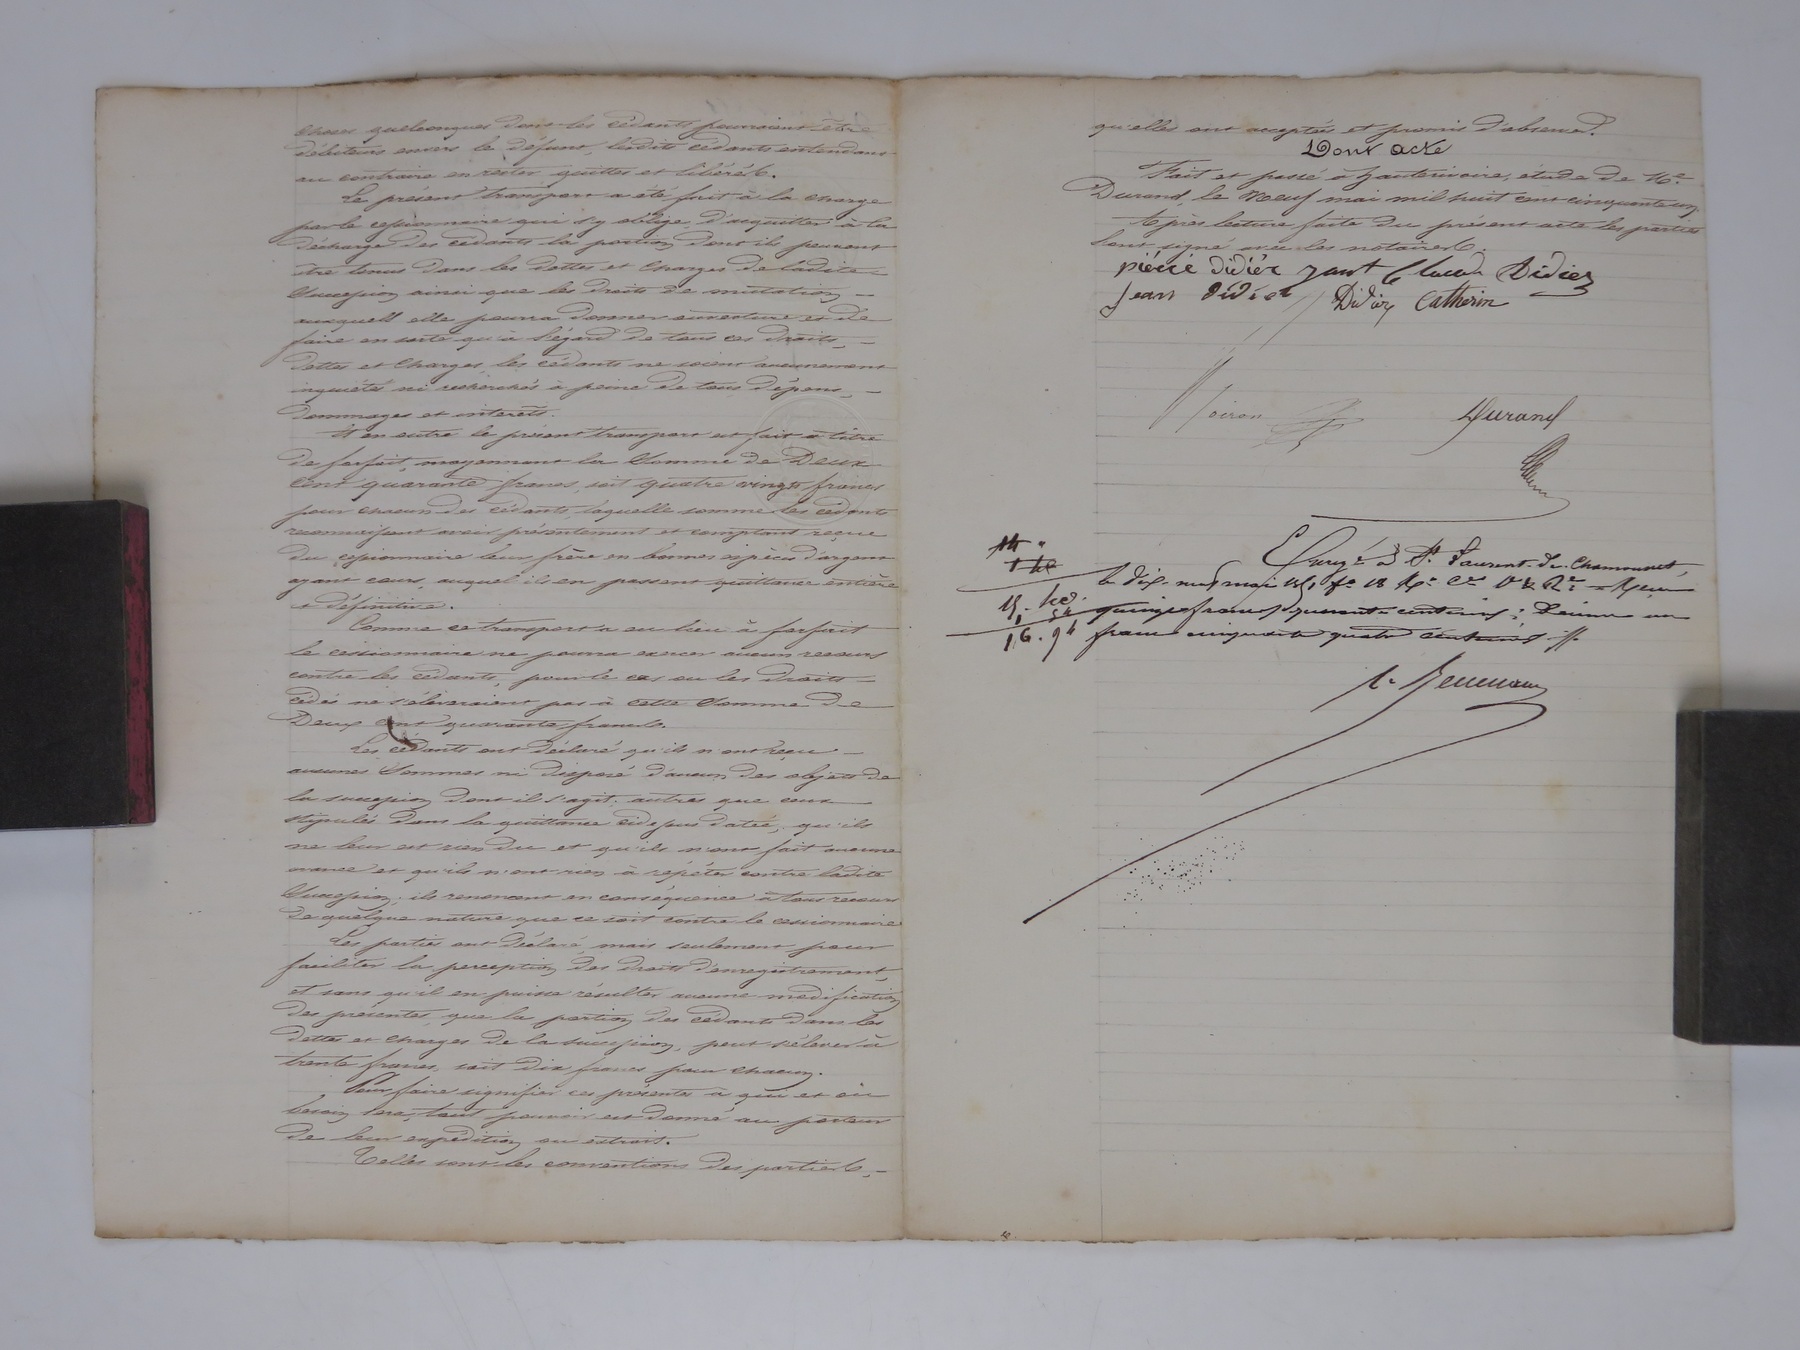 choses quelconques dont les cédants pourroient être
débiteurs envers le défunt, lesdits cédants entendant
au contraire en rester quittes et libérés.
Le présent transport a été fait à la charge
par le cessionnaire qui s'y oblige d'acquitter à la
décharge des cédants la portion dont ils peuvent
être tenus dans les dettes et charges de ladite
succession ainsi que les droits de mutation
auxquels elle pourra donner ouverture et de
faire en sorte qu'à l'égard de tous ces droits,
dettes et charges, les cédants ne soient aucunement
inquiétés ni recherchés à peine de tous dépens,
dommages et intérêts.
Et en outre le présent transport est fait à titre
de forfait, moyennant la somme de Deux
cent quarante francs, soit quatre vingts francs
pour chacun des cédants, laquelle somme les cédants
reconnoissent avoir présentement et comptant reçue
du cessionnaire leur frère en bonnes espèces d'argent
ayant cours, auquel ils en passent quittance entière
et définitive.
Comme ce transport a eu lieu à forfait
le cessionnaire ne pourra exercer aucun recours
contre les cédants, pour le cas ou les droits
cédés ne s'éleveraient pas à cette somme de
Deux cent quarante francs.
Les cédants ont déclaré qu'ils n'ont reçu
aucunes sommes ni disposé d'aucun des objets de
la succession dont il s'agit, autres que ceux
stipulés dans la quittance cidessus datée, qu'ils
ne leur est rien du et qu'ils n'ont fait aucune
avance et qu'ils n'ont rien à répéter contre ladite
succession; ils renoncent en conséquence à tous recours
de quelque nature que ce soit contre le cessionnaire
Les parties ont déclaré, mais seulement pour
faciliter la perception des droits d'enregistrement,
et sans qu'il en puisse résulter aucune modification
des présentes, que la portion des cédants dans les
dettes et charges de la succession, peut s'élever à
trente francs, soit dix francs pour chacun.
Pour faire signifier ces présentes à qui et où
besoin sera, tout pouvoir est donné au porteur
de leur expédition ou extrait.
Telles sont les conventions des parties,
qu'elles ont acceptées et promis d'observer.
Dont acte
Fait et passé à hauterivoire, étude de Me
Durand, le Neuf mai mil huit cent cinquante un
Après lecture faite du présent acte les parties
l'ont signé avec les notaires.
piérré didiér Claude Didier
Jean didier Didier Catherin
Voiron Durand
Enregé à St Laurent de Chamousset,
le dix-neuf mai 1851 fo 18 Ro Reçu
quinze francs quarante centimes; Décime un
franc cinquante quatre centimes
15. 40
1. 54
16. 94